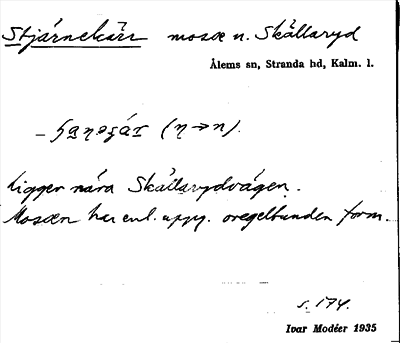 Stjärnekärr mosse n. Skällaryd
Ålems sn, Stranda hd, Kalm. l.
(η → n).
Ligger nära Skällarydvägen.
Mossen har enl. uppg. oregelbunden form.
s. 174.
Ivar Modéer 1935